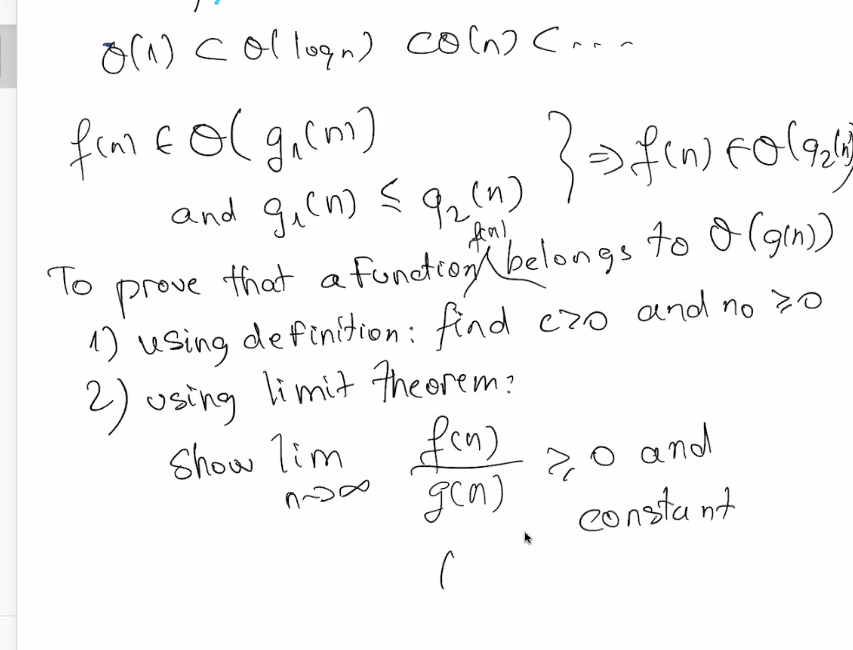 O(1) ⊂ O(logn) ⊂ O(n) ⊂ ...
f(n) ∈ O(g₁(n)) } ⇒ f(n) ∈ O(g₂(n)
and g₁(n) ≤ g₂(n)
To prove that a function f(n) belongs to O(g(n))
1) using definition: find c>0 and n₀ ≥0
2) using limit theorem:
show lim n→∞ f(n)/g(n) ≥ 0 and
constant
(